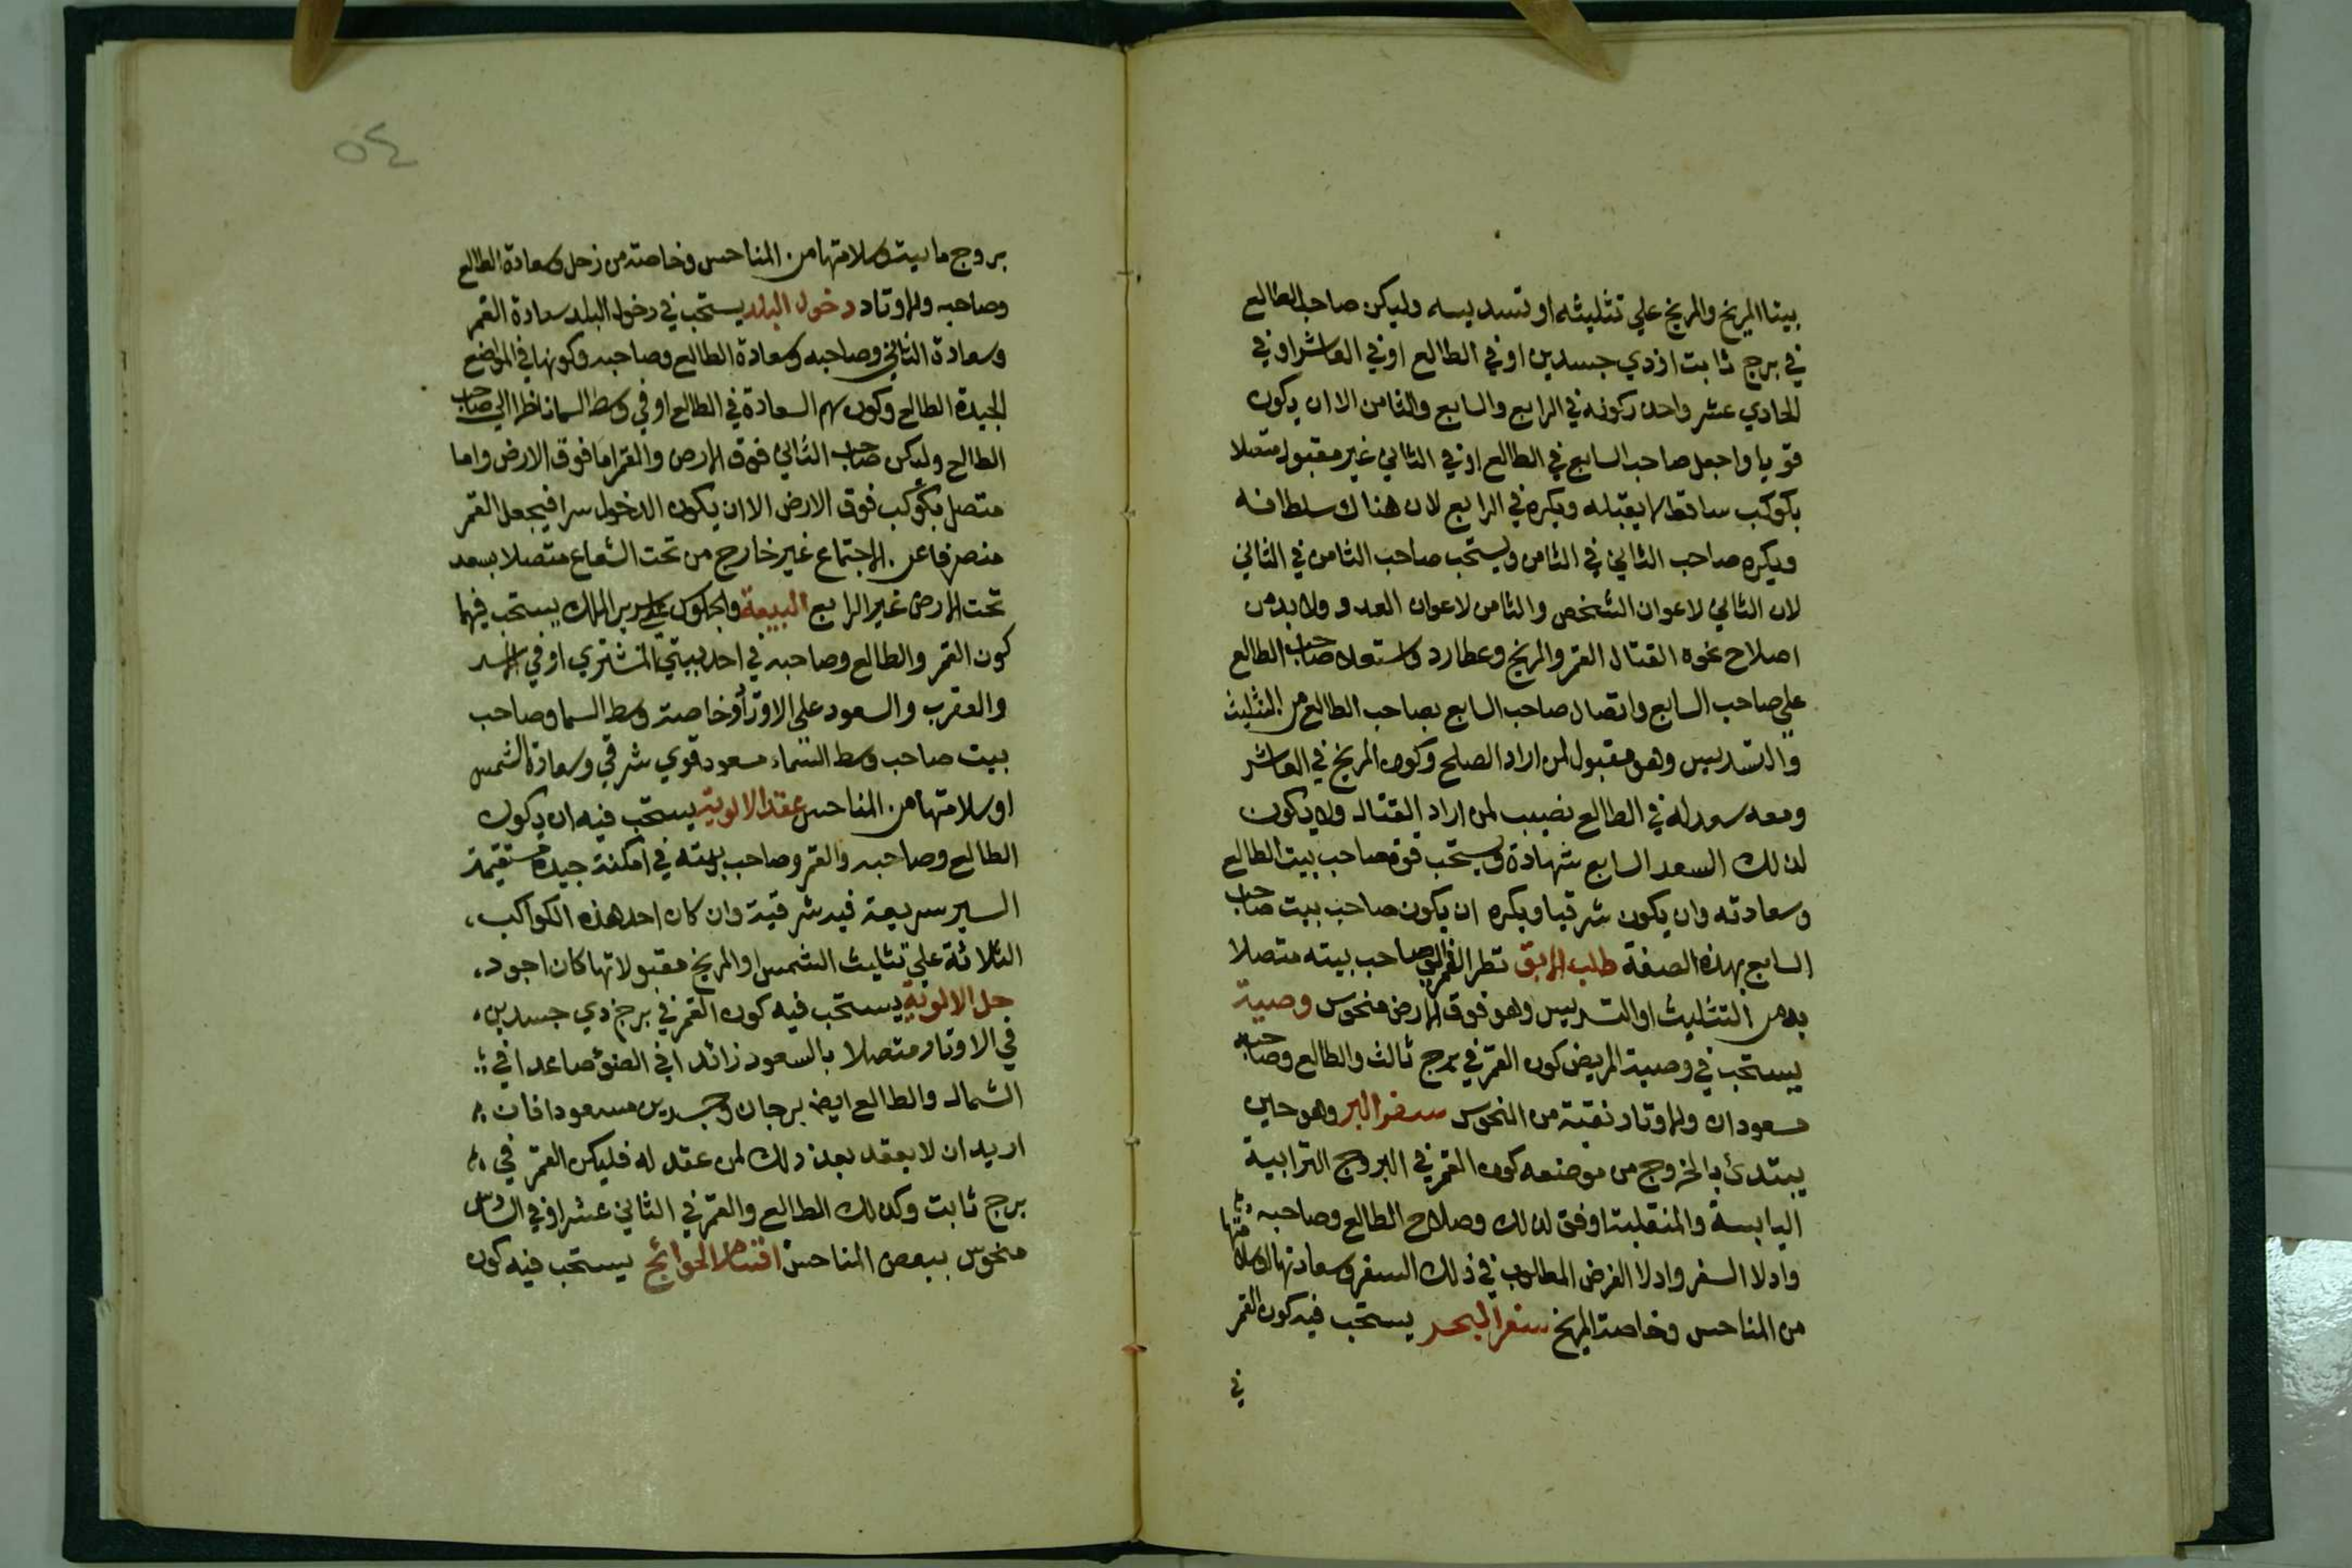 بيتا المريخ والمريخ علي تثليثه او تسديسه وليكن صاحب الطالع
في برج ثابت اوذي جسدين او في الطالع او في العاشر او في
الحادي عشر واحد ركونه في الرابع والسابع والثامن الا ان يكون
قويا واجعل صاحب السابع في الطالع او في الثاني غير مقبول متصلا
بكوكب ساقط لا يقبله ويكره في الرابع لان هناك سلطانه
ويكره صاحب الثاني في الثامن ويستحب صاحب الثامن في الثاني
لان الثاني لاعوان الشخص والثامن لاعوان العدو ولا بد من
اصلاح نحوه القتال القمر والمريخ وعطارد واستعلا صاحب الطالع
علي صاحب السابع واتصال صاحب السابع بصاحب الطالع من التثليث
والتسديس وهو مقبول لمن اراد الصلح وكون المريخ في العاشر
ومعه سعد له في الطالع نصيب لمن اراد القتال ولا يكون
لذلك السعد السابع شهادة ويستحب قوة صاحب بيت الطالع
وسعادته وان يكون شرقيا ويكره ان يكون صاحب بيت صاحب
السابع بهذه الصفة طلب الابق تطر القمر الي صاحب بيته متصلا
به من التثليث او التسديس وهو فوق الارض منحوس وصية
يستحب في وصية المريض كون القمر في برج ثالث والطالع وصاحبه
مسعودان والاوتاد نقية من النحوس سفر البر وهو حين
يبتدئ بالخروج من موضعه كون القمر في البروج الترابية
اليابسة والمنقلبة اوفق لذلك وصلاح الطالع وصاحبه
وادلا السفر وادلا الغرض المطلوب في ذلك السفر وسعادتها وسلامتها
من المناحس وخاصة المريخ سفر البحر يستحب فيه كون القمر
في
٥٤
بروج مابيت وسلامتها من المناحس وخاصة من زحل وسعادة الطالع
وصاحبه والاوتاد دخول البلد يستحب في دخول البلد سعادة القمر
وسعادة الثاني وصاحبه وسعادة الطالع وصاحبه وكونها في المواضع
الجيدة الطالع وكون سهم السعادة في الطالع او في وسط السما ناظرا الي صاحب
الطالع وليكن صاحب الثاني فوق الارض والقمر اما فوق الارض واما
متصل بكوكب فوق الارض الا ان يكون الدخول سرا فيجعل القمر
منصرفا عن الاجتماع غير خارج من تحت الشعاع متصلا بسعد
تحت الارض غير الرابع البيعة والجلوس علي سرير الملك يستحب فيهما
كون القمر والطالع وصاحبه في احد بيتي المشتري او في الاسد
والعقرب والسعود علي الاوتاد وخاصة وسط السما وصاحب
بيت صاحب وسط السماء مسعود قوي شرقي وسعادة الشمس
او سلامتها من المناحس عقد الالوية يستحب فيه ان يكون
الطالع وصاحبه والقمر وصاحب بيته في امكنة جيدة مستقيمة
السير سريعة فيه شرقية وان كان احد هذه الكواكب
الثلاثة علي تثليث الشمس او المريخ مقبولاتها كان اجود
حل الالوية يستحب فيه كون القمر في برج ذي جسدين
في الاوتاد متصلا بالسعود زائدا في الضوء صاعدا في
الشمال والطالع ايضا برجان وجسدين مسعودا فان
اريد ان لا يعقد بعد ذلك لمن عقد له فليكن القمر في
برج ثابت وكذلك الطالع والقمر في الثاني عشر او في السادس
منحوس ببعض المناحس اقتضا الحوائج يستحب فيه كون